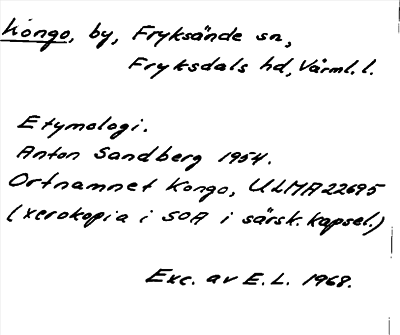 Kongo, by, Fryksände sn,
Fryksdals hd, Värml. l.
Etymologi.
Anton Sandberg 1954.
Ortnamnet Kongo, ULMA 22695
(xerokopia i SOA i särsk. kapsel.)
Exc. av E. L. 1968.